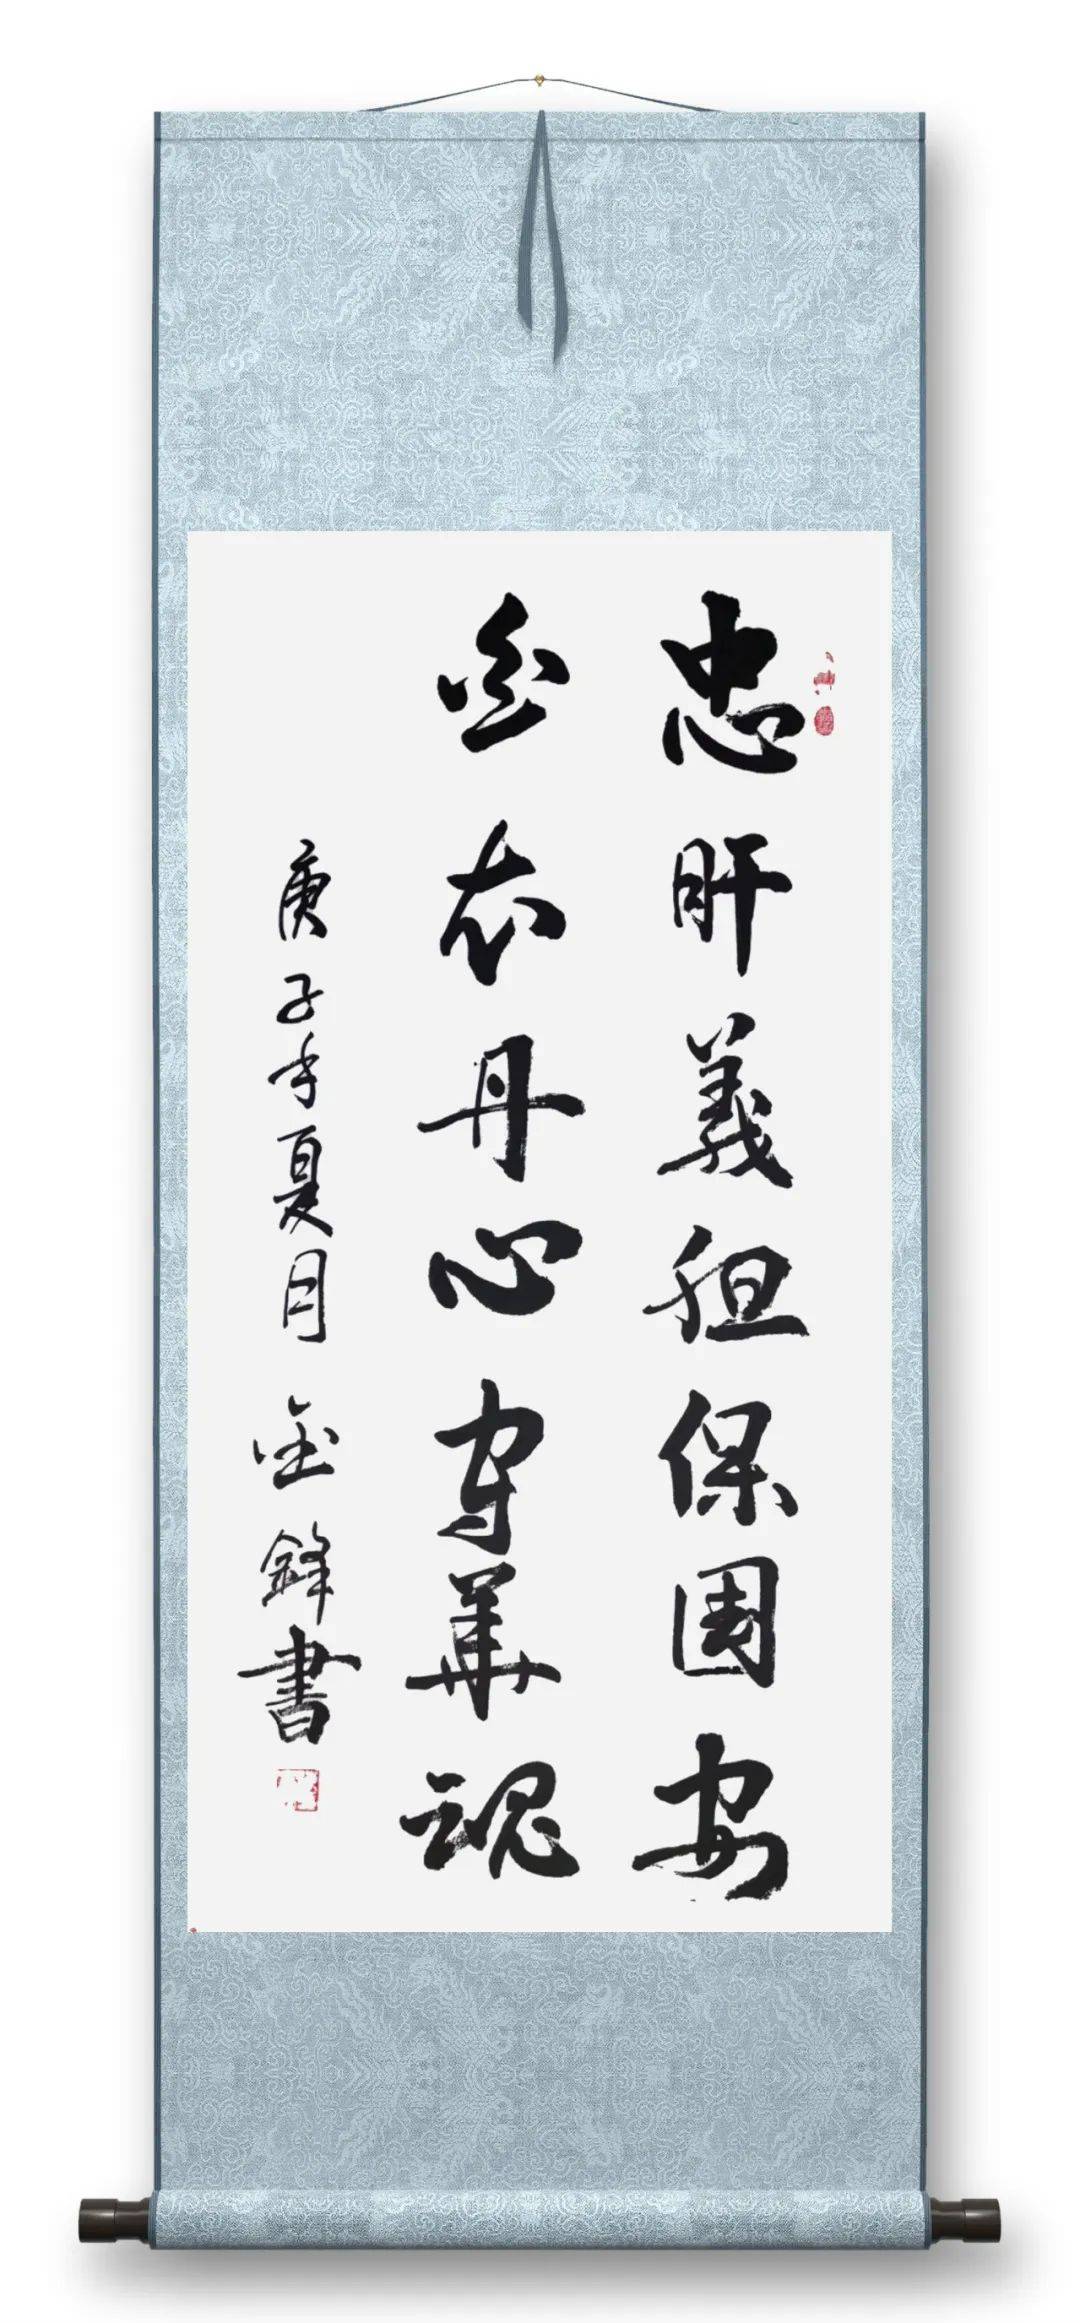 忠肝義胆保國安
金衣丹心守華魂
庚子年夏月 金鋒書